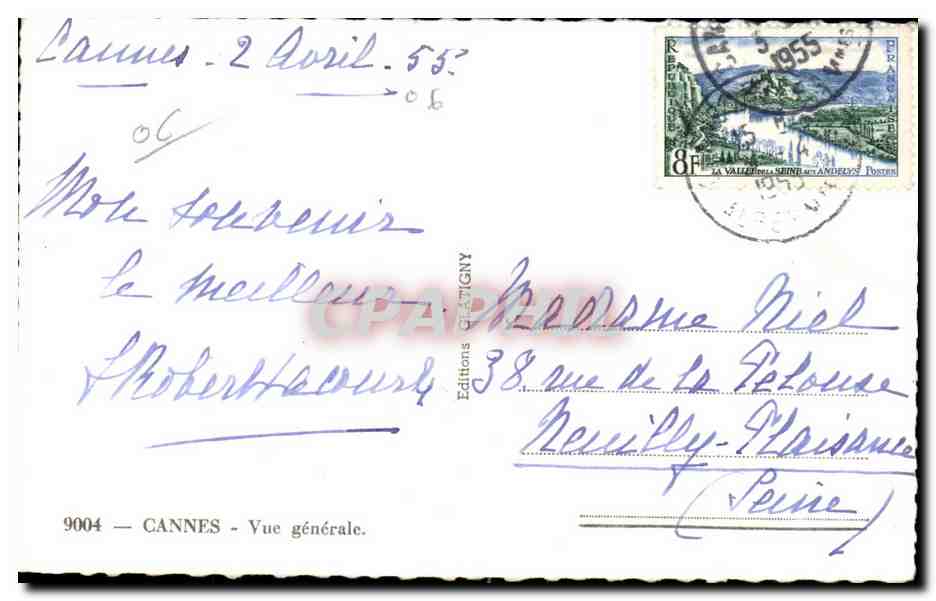 Cannes - 2 Avril - 55.
06
06
Mon souvenir
le meilleur
9004 — CANNES - Vue générale.
Editions GLATIGNY
CPARAMA
REPUBLIQUE
FRANÇAISE
8F
LA VALLEE DE LA SEINE AUX ANDELYS POSTES
1955
Madame Niel
38 rue de la Pelouse
Neuilly-Plaisance
(Seine)